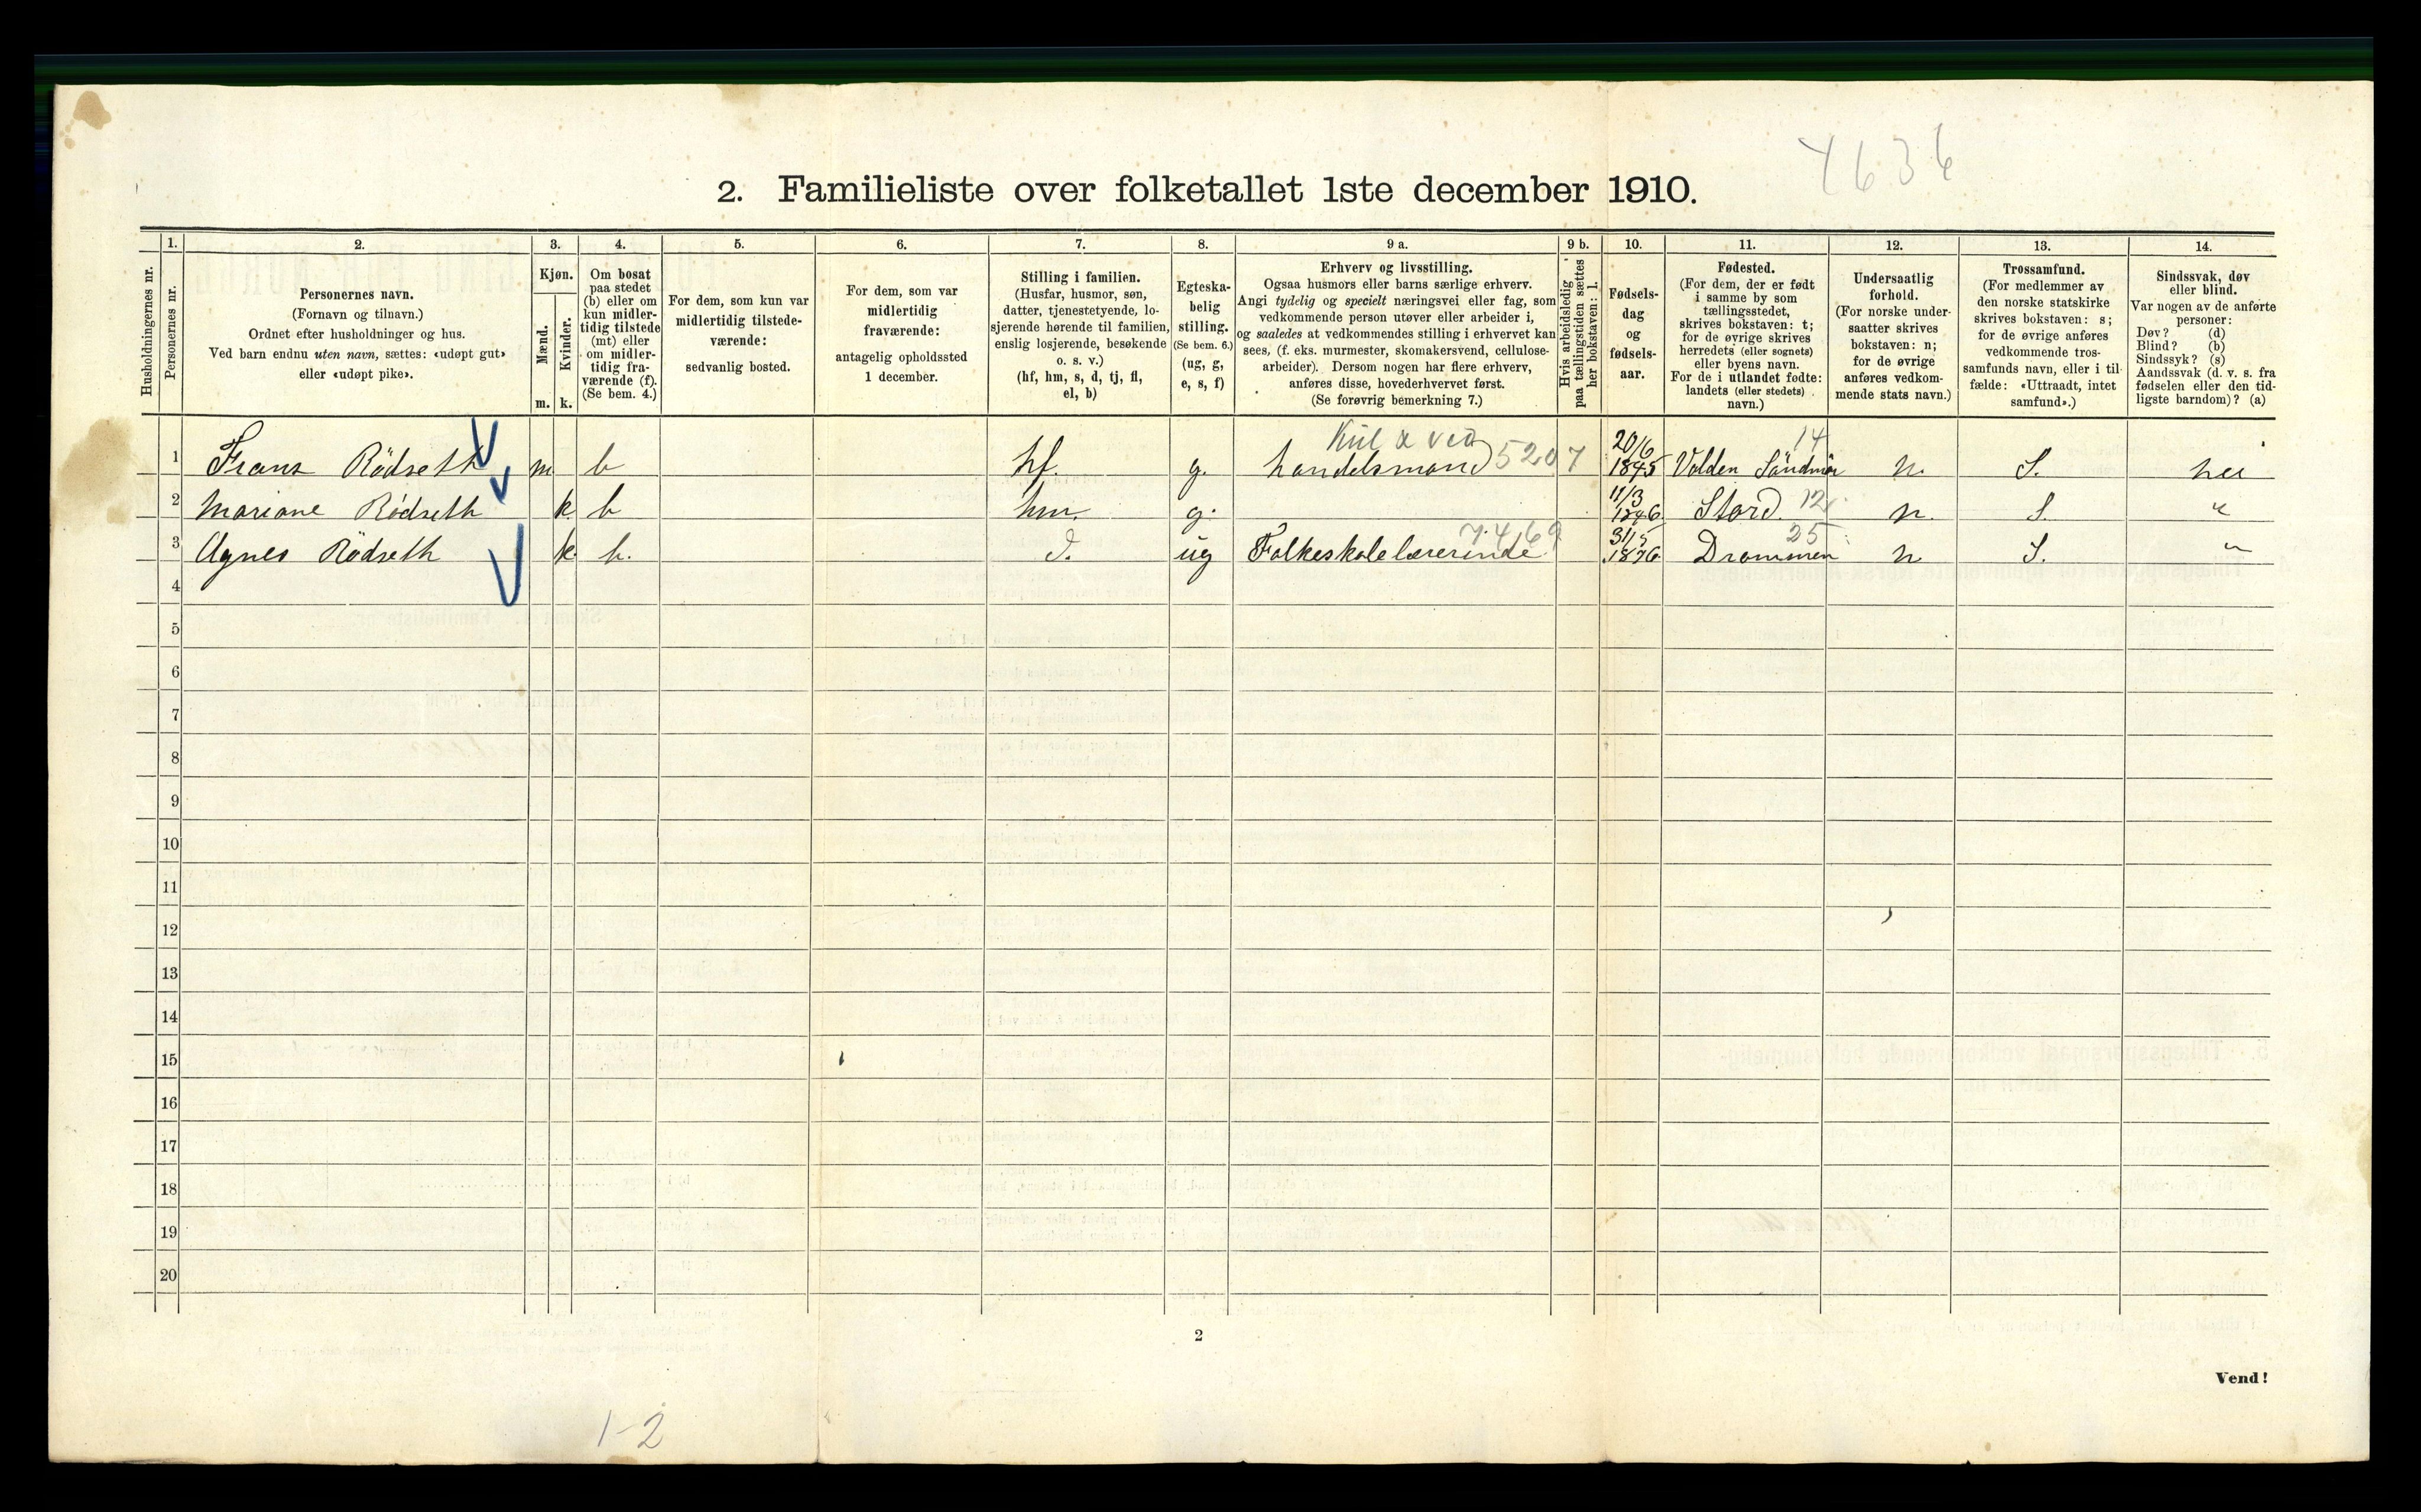 4636
2. Familieliste over folketallet 1ste december 1910.
Husholdningernes nr.
1.
Personernes nr.
2.
Personernes navn.
(Fornavn og tilnavn.)
Ordnet efter husholdninger og hus.
Ved barn endnu uten navn, sættes: «udøpt gut»
eller «udøpt pike».
3.
Kjøn.
Mænd.
Kvinder.
m. k.
4.
Om bosat
paa stedet
(b) eller om
kun midler-
tidig tilstede
(mt) eller
om midler-
tidig fra-
værende (f).
(Se bem. 4.)
5.
For dem, som kun var
midlertidig tilstede-
værende:
sedvanlig bosted.
6.
For dem, som var
midlertidig
fraværende:
antagelig opholdssted
1 december.
7.
Stilling i familien.
(Husfar, husmor, søn,
datter, tjenestetyende, lo-
sjerende hørende til familien,
enslig losjerende, besøkende
o. s. v.)
(hf, hm, s, d, tj, fl,
el, b)
8.
Egteska-
belig
stilling.
(Se bem. 6.)
(ug, g,
e, s, f)
9 a.
Erhverv og livsstilling.
Ogsaa husmors eller barns særlige erhverv.
Angi tydelig og specielt næringsvei eller fag, som
vedkommende person utøver eller arbeider i,
og saaledes at vedkommendes stilling i erhvervet kan
sees, (f. eks. murmester, skomakersvend, cellulose-
arbeider). Dersom nogen har flere erhverv,
anføres disse, hovederhvervet først.
(Se forøvrig bemerkning 7.)
9 b.
Hvis arbeidsledig
paa tællingstiden sættes
her bokstaven: l.
10.
Fødsels-
dag
og
fødsels-
aar.
11.
Fødested.
(For dem, der er født
i samme by som
tællingsstedet,
skrives bokstaven: t;
for de øvrige skrives
herredets (eller sognets)
eller byens navn.
For de i utlandet fødte:
landets (eller stedets)
navn.)
12.
Undersaatlig
forhold.
(For norske under-
saatter skrives
bokstaven: n;
for de øvrige
anføres vedkom-
mende stats navn.)
13.
Trossamfund.
(For medlemmer av
den norske statskirke
skrives bokstaven: s;
for de øvrige anføres
vedkommende tros-
samfunds navn, eller i til-
fælde: «Uttraadt, intet
samfund».)
14.
Sindssvak, døv
eller blind.
Var nogen av de anførte
personer:
Døv? (d)
Blind? (b)
Sindssyk? (s)
Aandssvak (d. v. s. fra
fødselen eller den tid-
ligste barndom)? (a)
Kul & ved 14
1 Frans Rödseth m b hf. g. handelsmand 5207 20/6 1845 Volden Söndmör n. S. nei
2 Mariane Rödseth k b hm. g. 11/3 1846 Stord 12 n. S. "
3 Agnes Rödseth k b. d. ug Folkeskolelærerinde 7.469 31/5 1876 Drammen 25 n S. "
4
5
6
7
8
9
10
11
12
13
14
15
16
17
18
19
20
2
Vend!
1-2